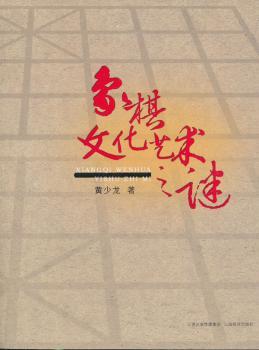 象棋
文化艺术
之谜
XIANGQI WENHUA
YISHU ZHI MI
黄少龙 著